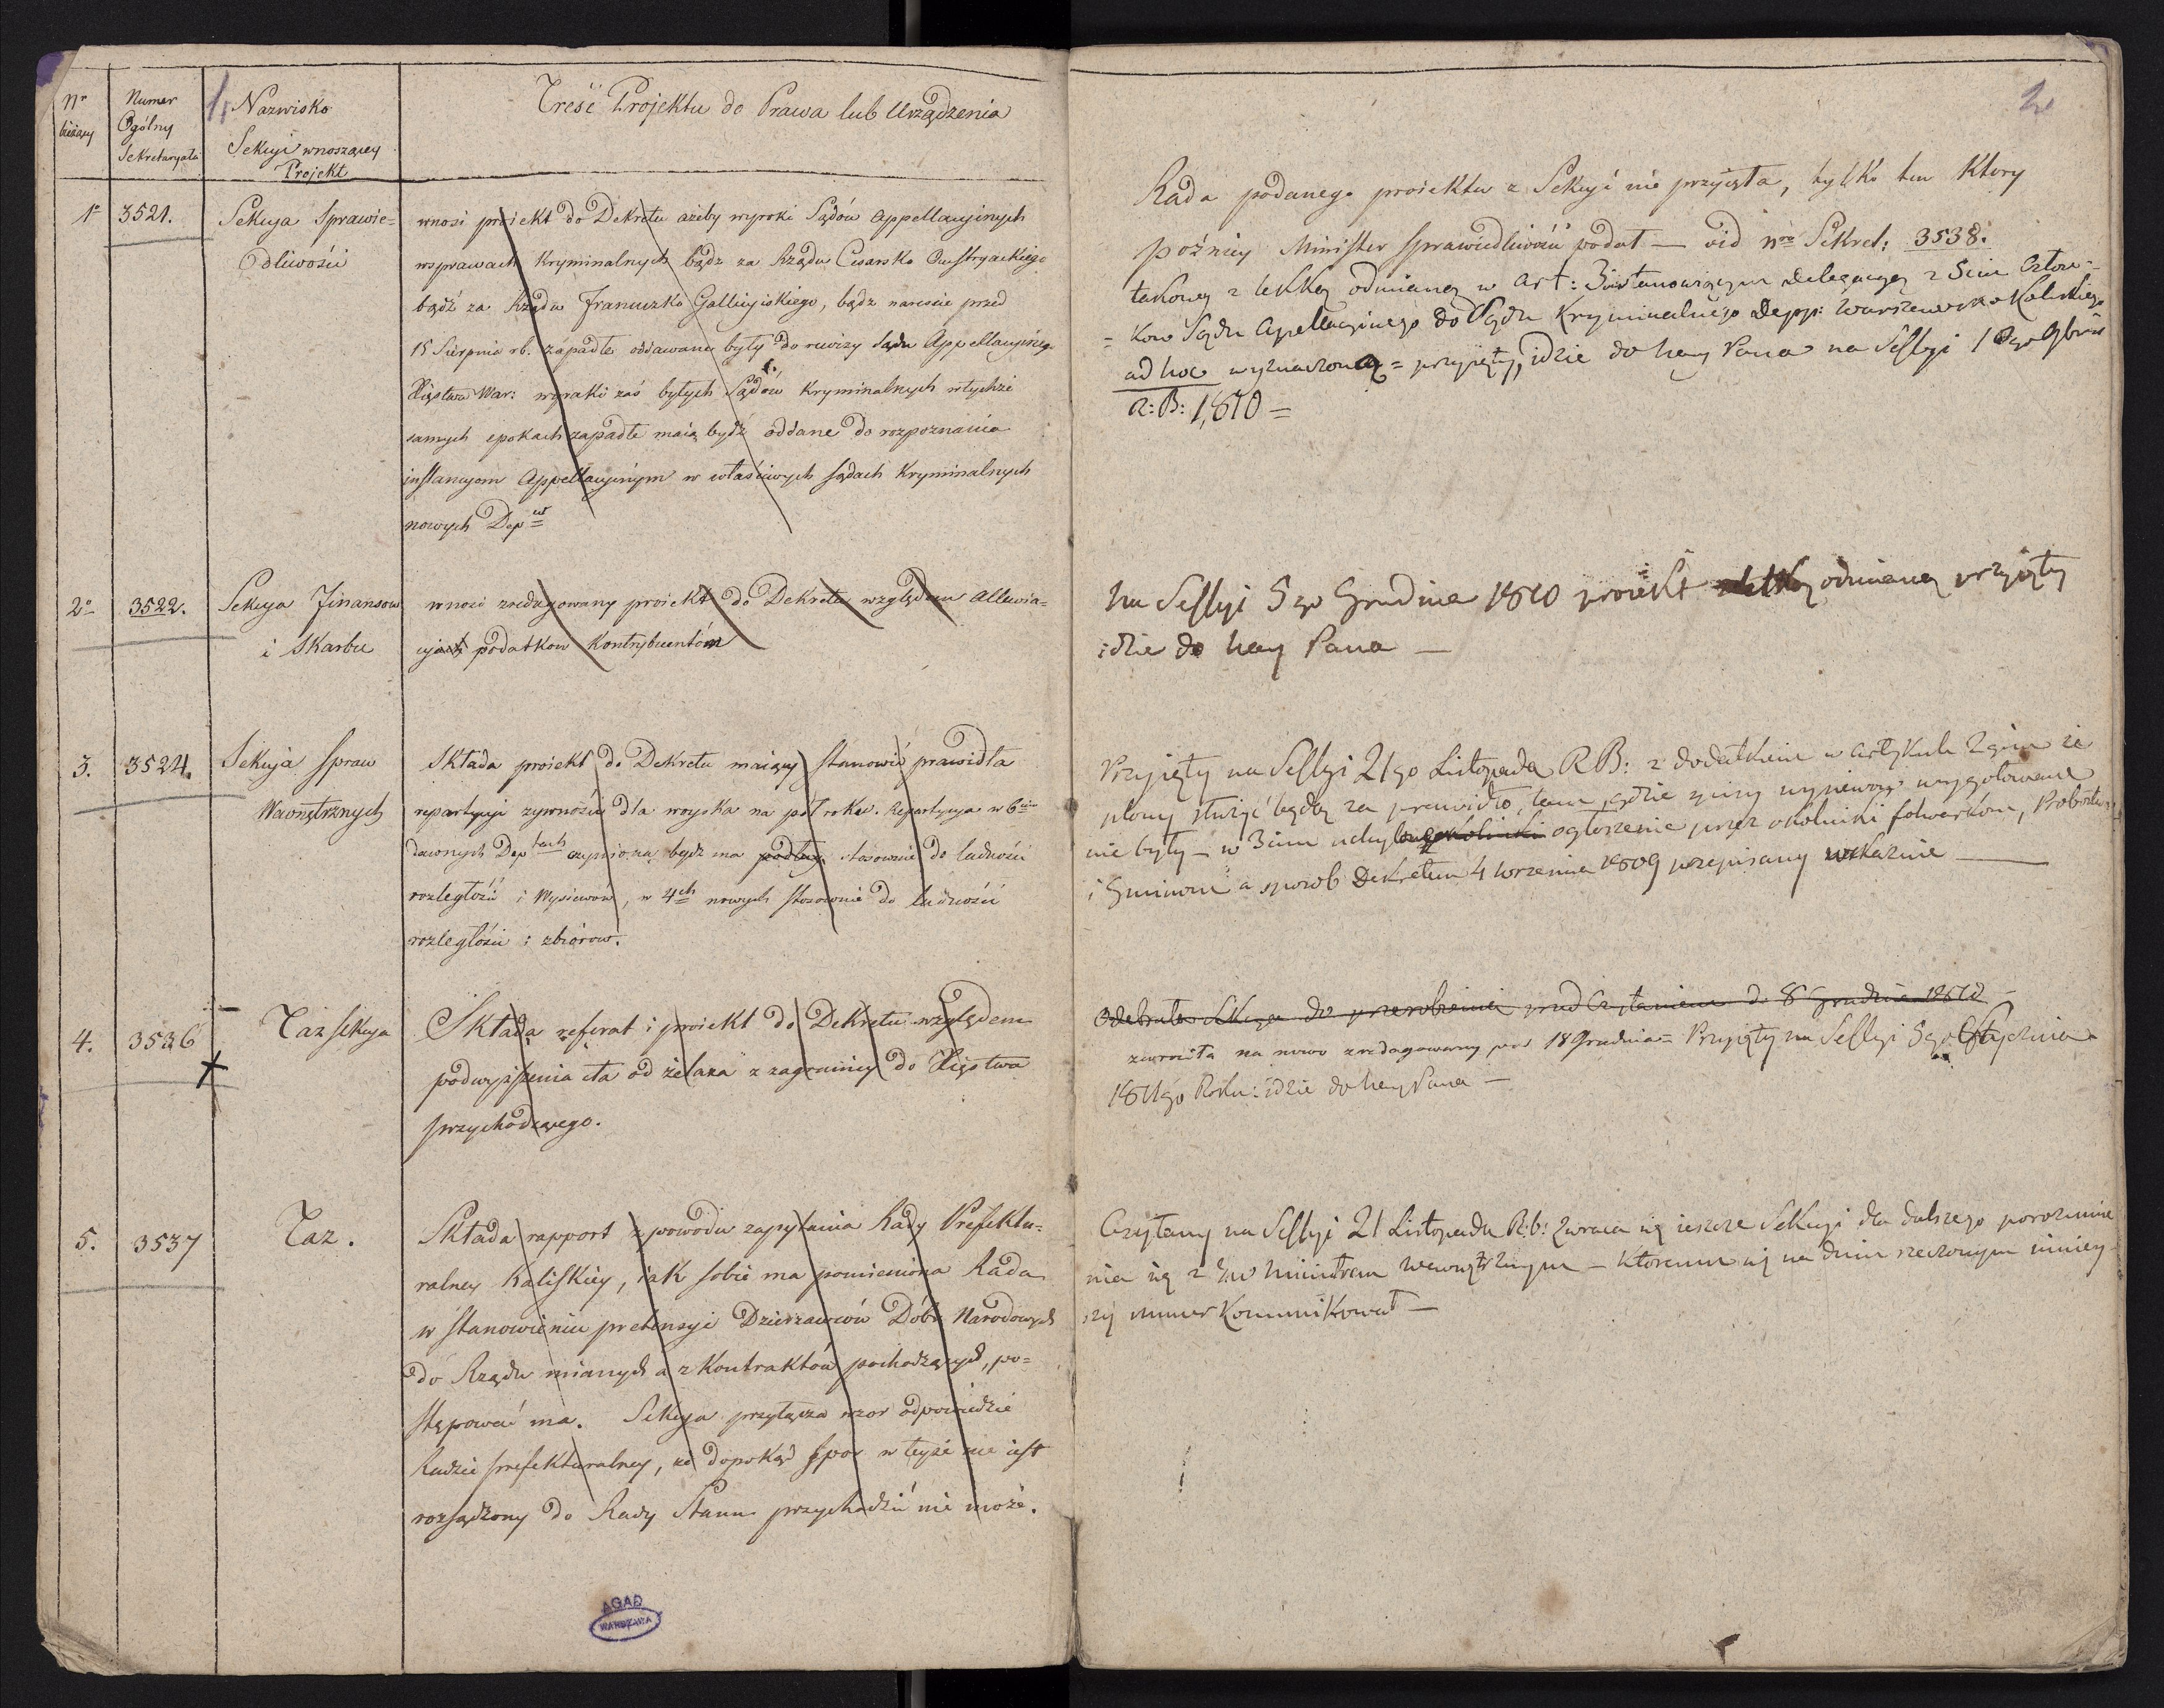 Nr bieżący
Numer Ogólny Sekretaryatu
1.
Nazwisko Sekcyi wnoszącey Projekt
Treść Projektu do Prawa lub Urządzenia
1o 3521. Sekcya Sprawie=
dliwości
wnosi proiekt do Dekretu ażeby wyroki Sądów Appellacyinych
wsprawach Kryminalnych bądz za Rządu Cesarsko Austryackiego
bądź za Rządu Francuzko Gallicyiskiego, bądz nareście przed
15 Sierpnia rb. zapadłe oddawane były do rewizy Sądu Appellacyinego
Xięstwa War: wyroki zaś byłych Sądów Kryminalnych wtychże
samych epokach zapadłe maią bydź oddane do rozpoznania
instancyom Appellacyinym w właściwych sądach Kryminalnych
nowych Depw
2o 3522. Sekcya Finansow
i Skarbu
wnosi zredagowany proiekt do Dekretu względem allewia=
cyi podatkow Kontrybuentóm
3. 3524. Sekcya Spraw
Wewnętrznych
Składa proiekt do Dekretu maiący stanowić prawidła
repartycyi zywności dla woyska na pół roku. Repartycya w 6ciu
dawnych Deptach czyniona bydz ma podług stosownie do ludności
rozległości i Wysiewów, w 4ch nowych stosownie do ludności
rozległości i zbiorow.
4. 3536 Taż Sekcya
Składa referat i proiekt do Dekretu względem
podwyższenia cła od żelaza z zagranicy do Xięstwa
przychodzącego.
5. 3537 Taż.
Składa rapport z powodu zapytania Rady Prefektu=
ralney Kaliskiey, iak sobie ma pomieniona Rada
w stanowieniu pretensyi Dzierżawców Dóbr Narodowych
do Rządu mianych a z Kontraktów pochodzących, po=
stępować ma. Sekcya przyłącza wzor odpowiedzi
Radzie prefekturalney, że dopokąd spor w teyże nie iest
rozsądzony do Rady Stanu przychodzić nie może.
AGAD
WARSZAWA
2
Rada podanego proiektu z Sekcyi nie przyięła, tylko ten Ktory
poźniey Minister Sprawiedliwości podał — vid nro Sekret: 3538.
takowy z lekką odmianą w Art: 3 stanowiącym delegacyą z 5ciu Człon=
=kow Sądu Apellacyinego do Sądu Kryminalnego Depp: Warszewsko Kaliskiego
ad hoc wyznaczoną = przyięty, idzie do Nay Pana na Sessyi
R: B: 1,810 =
Na Sessyi 5go Grudnia 1810 proiekt z lekką odmianą przyięty
idzie do Nay Pana —
Przyięty na Sessyi 21go Listopada R B: z dodatkiem w artykule 2gim że
plony służyć będą za prawidło, tam gdzie
nie były — w 3cim ogłoszenie przez okolniki folwarkom, Probostwom
i Gminom a sposob Dekretem 4 Września 1809 przepisany wskaznie —
Odebrała Sekcya do przerobienia przed Czytaniem d. 8 Grudnia 1810 —
zwrociła na nowo zredagowany pod 18 Grudnia = Przyięty na Sessyi 5go Stycznia
1811go Roku: idzie do Nay Pana —
Czytany na Sessyi 21 Listopada R:b: zwraca się ieszcze Sekcyi dla dalszego porozumie
nia się z Jw Ministrem Wewnętrznym — Ktoremu się na dniu rzeczonym niniey
szy numer Kommunikował —